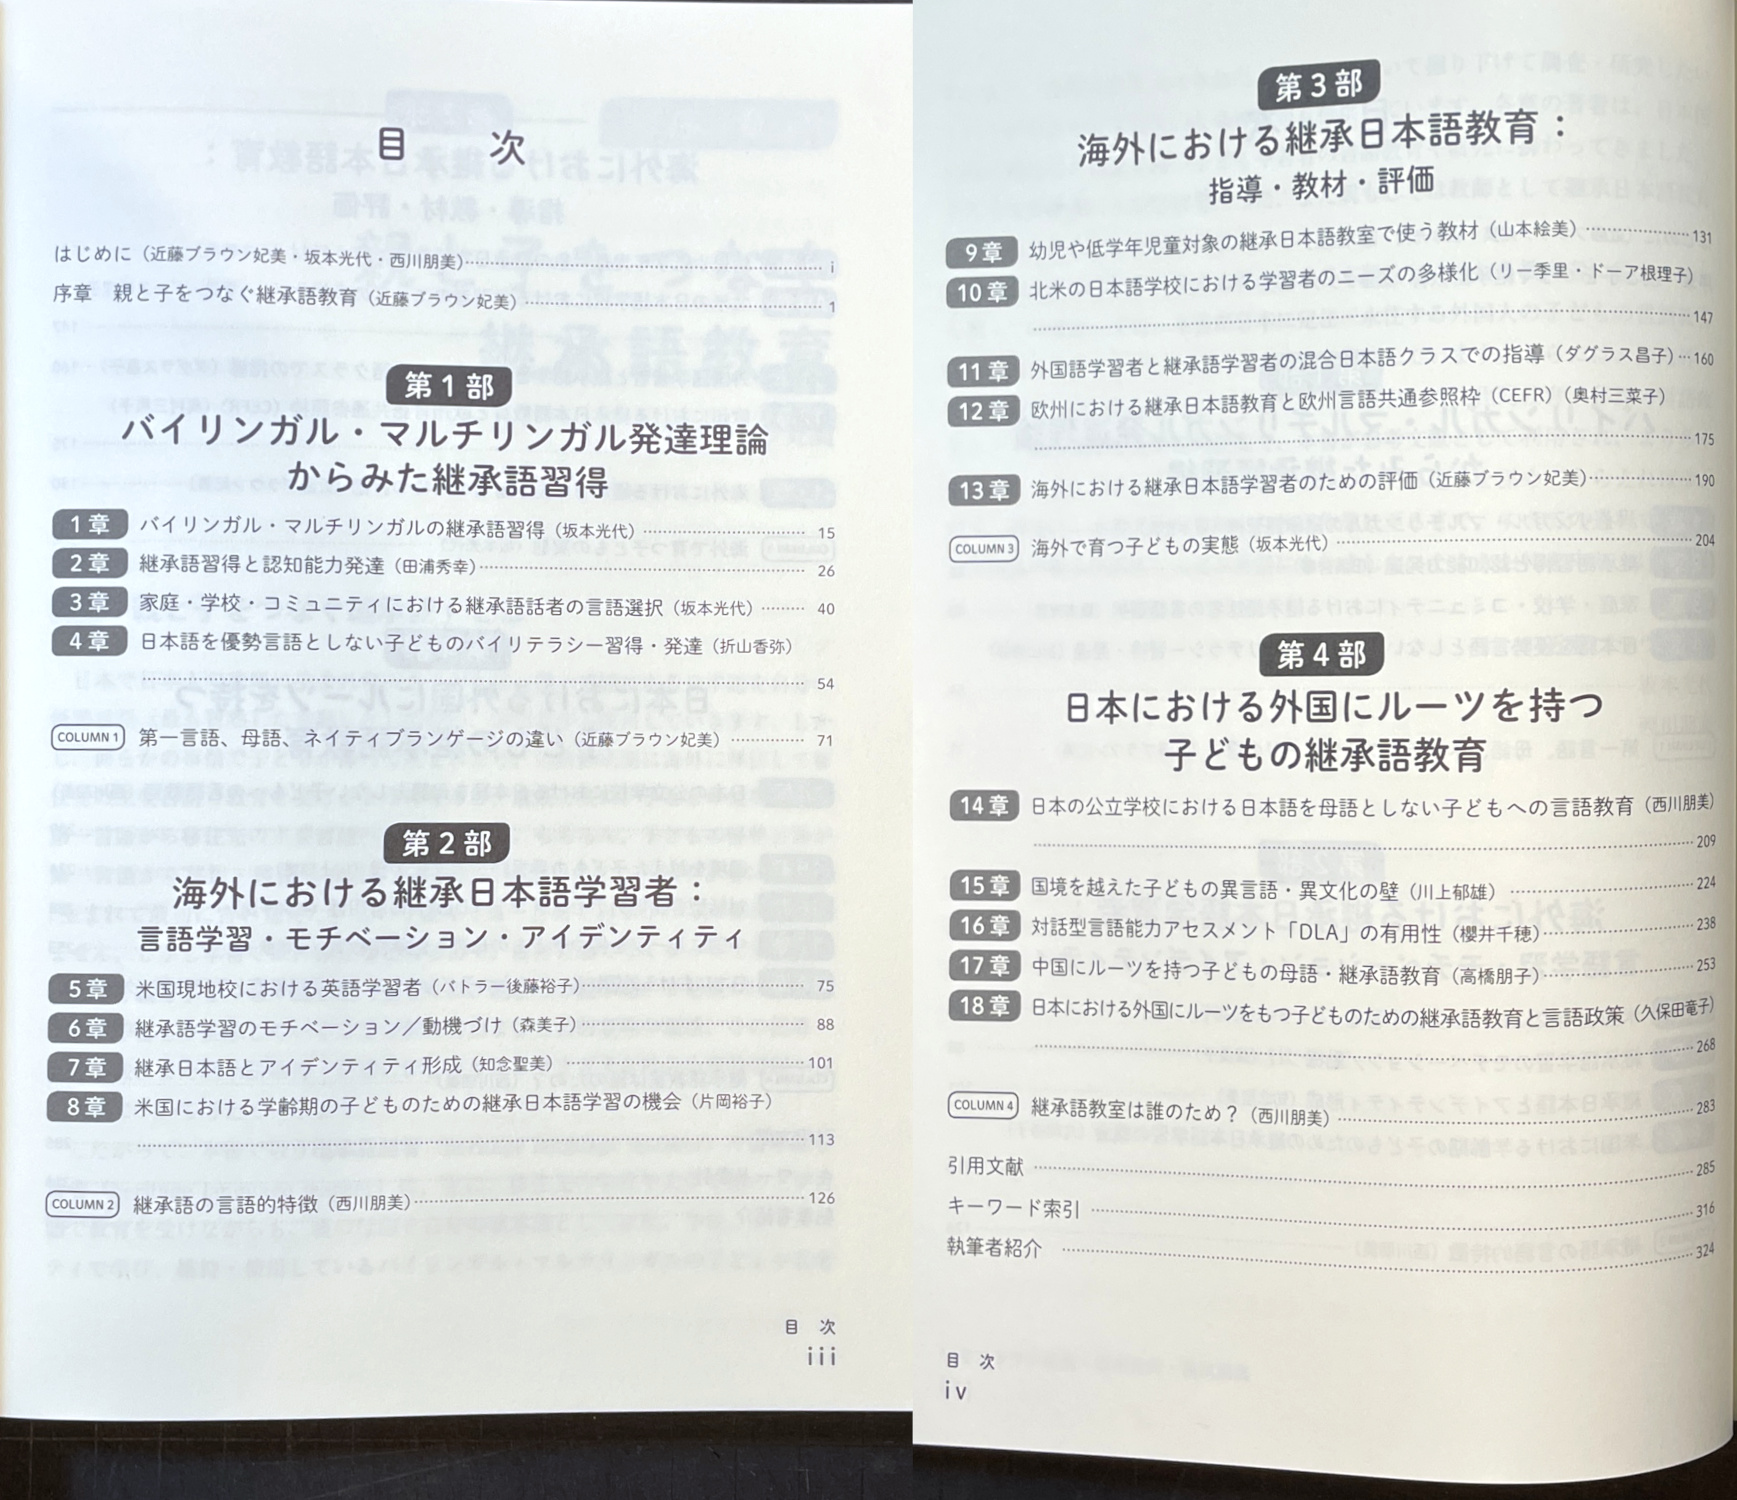 目 次
はじめに(近藤ブラウン妃美・坂本光代・西川朋美) i
序章 親と子をつなぐ継承語教育(近藤ブラウン妃美) 1
第1部
バイリンガル・マルチリンガル発達理論
からみた継承語習得
1章 バイリンガル・マルチリンガルの継承語習得(坂本光代) 15
2章 継承語習得と認知能力発達(田浦秀幸) 26
3章 家庭・学校・コミュニティにおける継承語話者の言語選択(坂本光代) 40
4章 日本語を優勢言語としない子どものバイリテラシー習得・発達(折山香弥)
54
COLUMN 1 第一言語、母語、ネイティブランゲージの違い(近藤ブラウン妃美) 71
第2部
海外における継承日本語学習者:
言語学習・モチベーション・アイデンティティ
5章 米国現地校における英語学習者(バトラー後藤裕子) 75
6章 継承語学習のモチベーション/動機づけ(森美子) 88
7章 継承日本語とアイデンティティ形成(知念聖美) 101
8章 米国における学齢期の子どものための継承日本語学習の機会(片岡裕子)
113
COLUMN 2 継承語の言語的特徴(西川朋美) 126
目 次
iii
第3部
海外における継承日本語教育:
指導・教材・評価
9章 幼児や低学年児童対象の継承日本語教室で使う教材(山本絵美) 131
10章 北米の日本語学校における学習者のニーズの多様化(リー季里・ドーア根理子)
147
11章 外国語学習者と継承語学習者の混合日本語クラスでの指導(ダグラス昌子) 160
12章 欧州における継承日本語教育と欧州言語共通参照枠(CEFR)(奥村三菜子)
175
13章 海外における継承日本語学習者のための評価(近藤ブラウン妃美) 190
COLUMN 3 海外で育つ子どもの実態(坂本光代) 204
第4部
日本における外国にルーツを持つ
子どもの継承語教育
14章 日本の公立学校における日本語を母語としない子どもへの言語教育(西川朋美)
209
15章 国境を越えた子どもの異言語・異文化の壁(川上郁雄) 224
16章 対話型言語能力アセスメント「DLA」の有用性(櫻井千穂) 238
17章 中国にルーツを持つ子どもの母語・継承語教育(高橋朋子) 253
18章 日本における外国にルーツをもつ子どものための継承語教育と言語政策(久保田竜子)
268
COLUMN 4 継承語教室は誰のため?(西川朋美) 283
引用文献 285
キーワード索引 316
執筆者紹介 324
目 次
iv